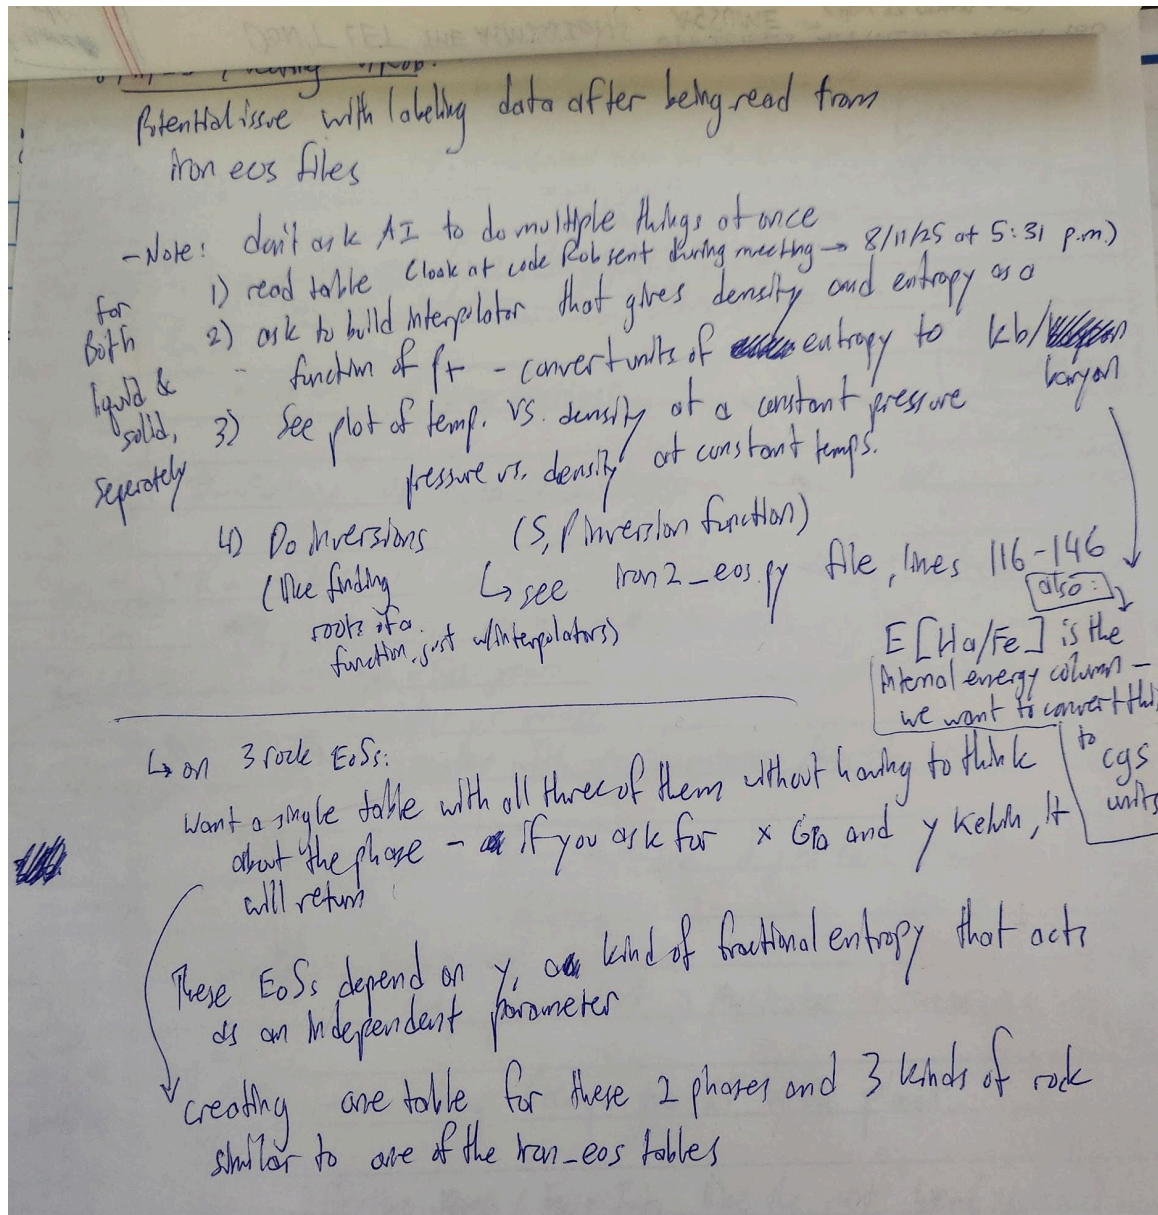 Potential issue with labeling data after being read from
iron eos files
- Note: don't ask AI to do multiple things at once
1) read table (look at code Rob sent during meeting → 8/11/25 at 5:31 p.m.)
for
Both
liquid &
solid,
seperately
2) ask to build interpolator that gives density and entropy as a
function of - convert units of entropy to kb/
baryon
3) See plot of temp. vs. density at a constant pressure
pressure vs. density at constant temps.
4) Do inversions (S, P inversion function)
(like finding ↳ see iron2_eos.py file, lines 116-146
roots of a
function, just w/interpolators)
also:
E [Ha/Fe] is the
internal energy column -
we want to convert this
to
cgs
units
↳ on 3 rock EoSs:
Want a single table with all three of them without having to think
about the phase - if you ask for x GPa and y Kelvin, it
will return
These EoSs depend on y, a kind of fractional entropy that acts
as an independent parameter
creating one table for these 2 phases and 3 kinds of rock
similar to one of the iron_eos tables